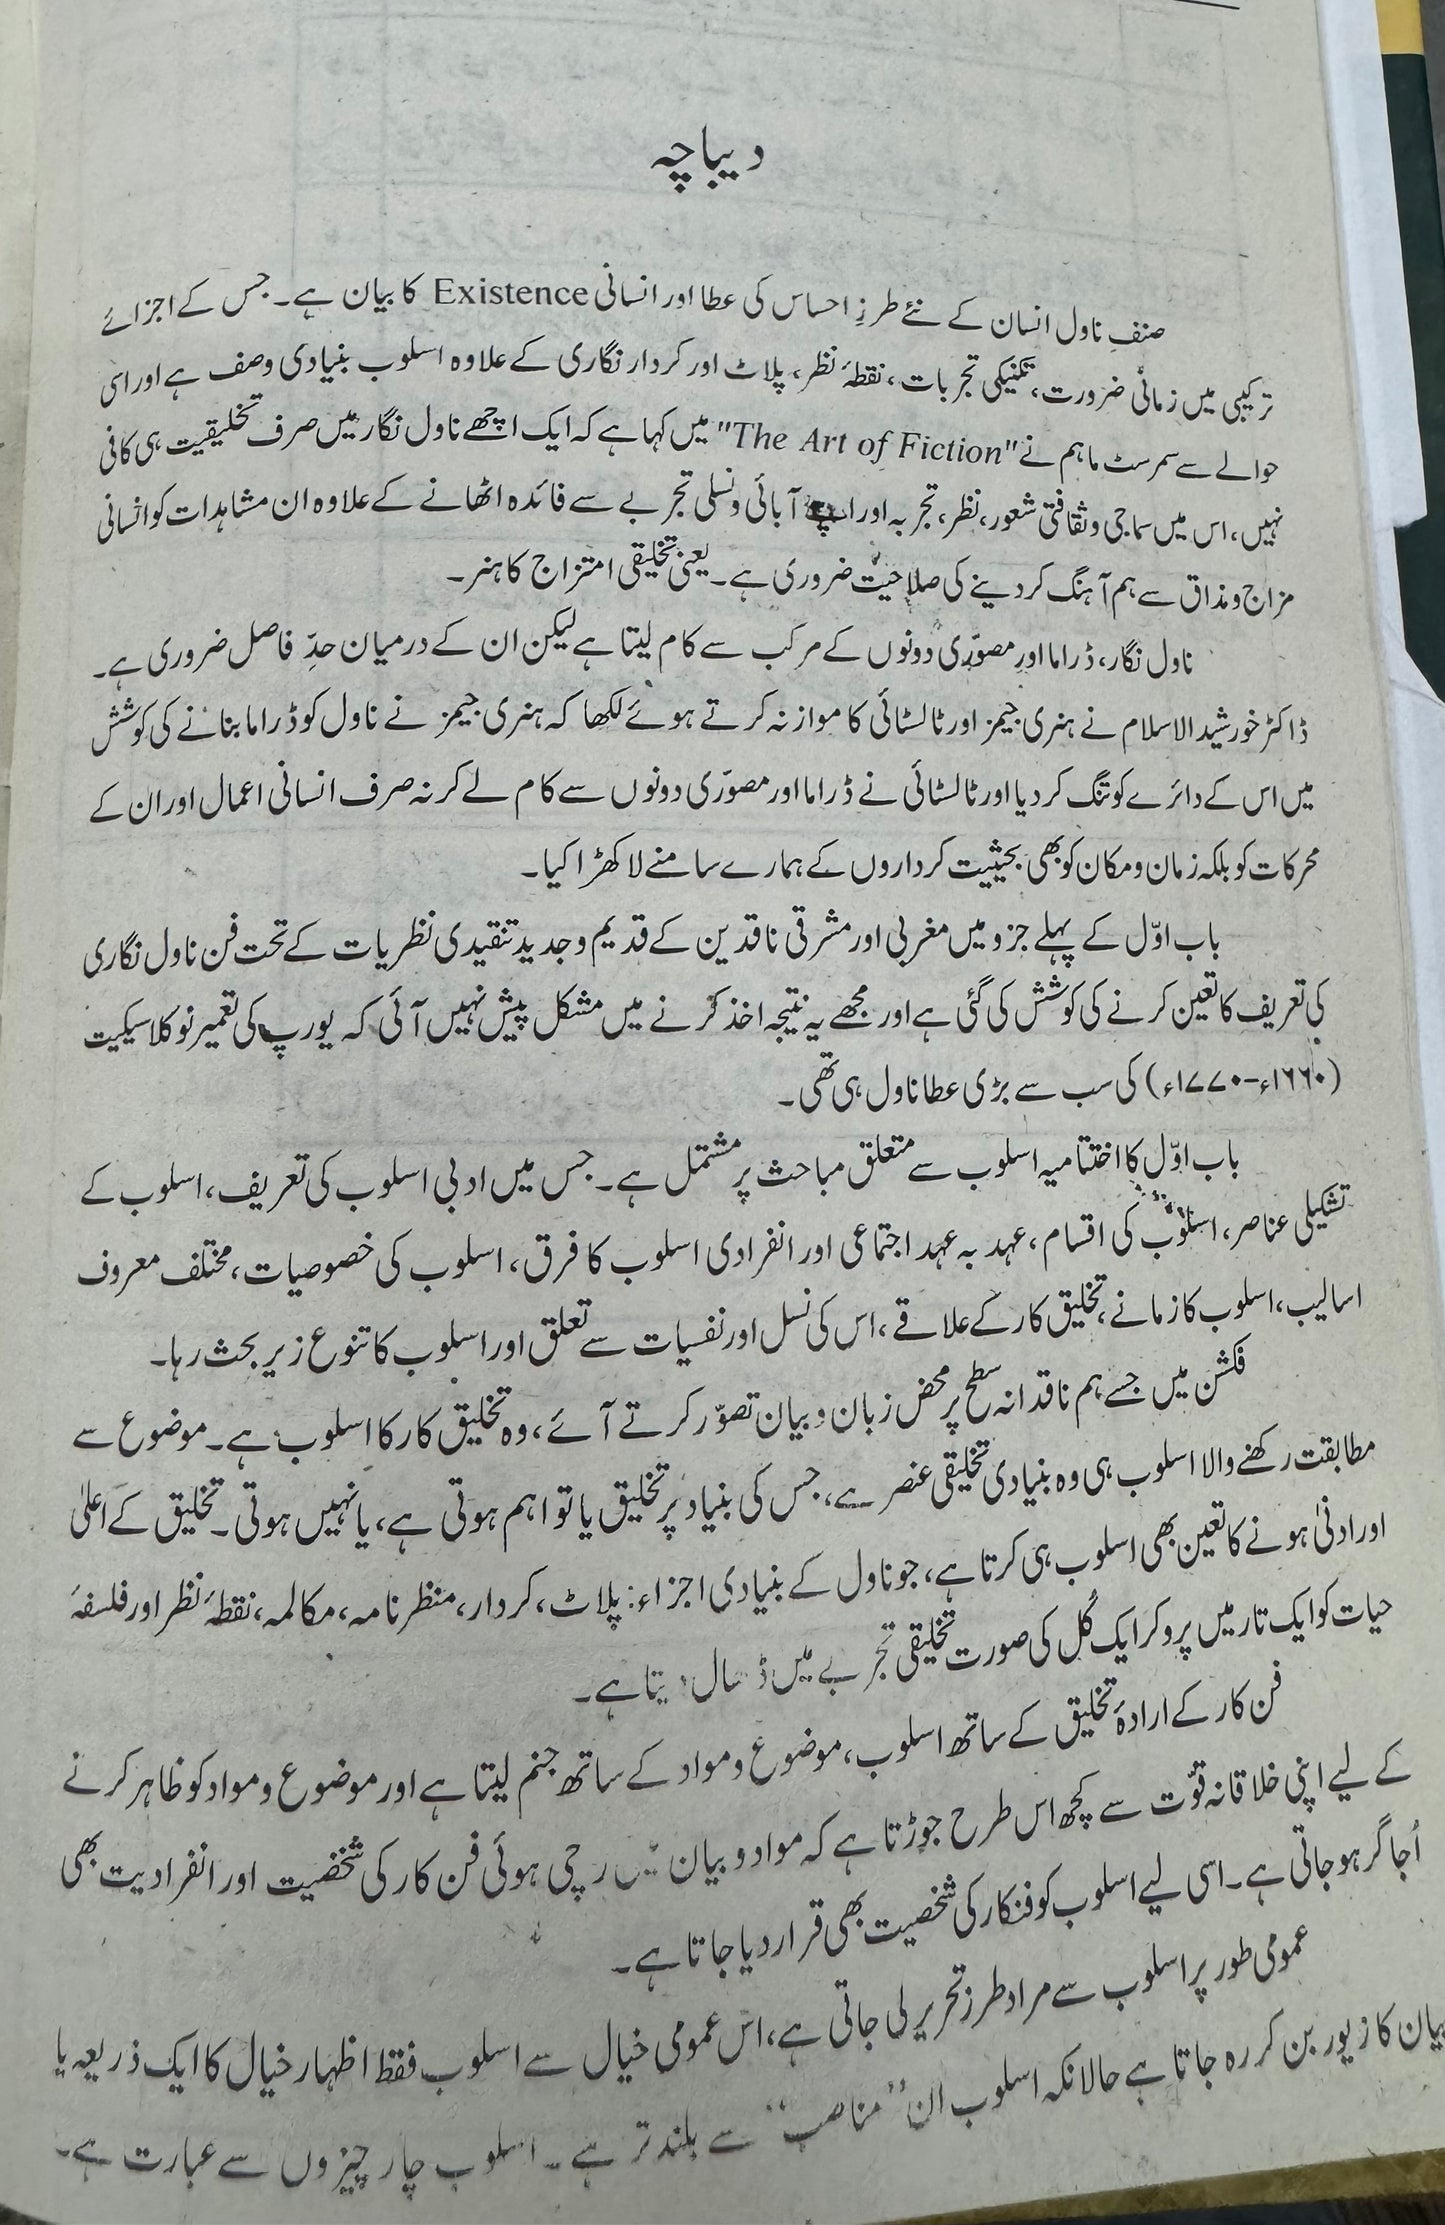 دیباچہ
صنفِ ناول انسان کے نئے طرزِ احساس کی عطا اور انسانی Existence کا بیان ہے۔ جس کے اجزائے
ترکیبی میں زمانی ضرورت، تکنیکی تجربات، نقطۂ نظر، پلاٹ اور کردار نگاری کے علاوہ اسلوب بنیادی وصف ہے اور اسی
حوالے سے سمرسٹ ماہم نے "The Art of Fiction" میں کہا ہے کہ ایک اچھے ناول نگار میں صرف تخلیقیت ہی کافی
نہیں، اس میں سماجی و ثقافتی شعور، نظر، تجربہ اور اپنے آبائی و نسلی تجربے سے فائدہ اٹھانے کے علاوہ ان مشاہدات کو انسانی
مزاج و مذاق سے ہم آہنگ کر دینے کی صلاحیت ضروری ہے۔ یعنی تخلیقی امتزاج کا ہنر۔
ناول نگار، ڈراما اور مصوّری دونوں کے مرکب سے کام لیتا ہے لیکن ان کے درمیان حدِّ فاصل ضروری ہے۔
ڈاکٹر خورشید الاسلام نے ہنری جیمز اور ٹالسٹائی کا موازنہ کرتے ہوئے لکھا کہ ہنری جیمز نے ناول کو ڈراما بنانے کی کوشش
میں اس کے دائرے کو تنگ کر دیا اور ٹالسٹائی نے ڈراما اور مصوّری دونوں سے کام لے کر نہ صرف انسانی اعمال اور ان کے
محرکات کو بلکہ زمان و مکان کو بھی بحیثیت کرداروں کے ہمارے سامنے لا کھڑا کیا۔
باب اوّل کے پہلے جزو میں مغربی اور مشرقی ناقدین کے قدیم و جدید تنقیدی نظریات کے تحت فن ناول نگاری
کی تعریف کا تعین کرنے کی کوشش کی گئی ہے اور مجھے یہ نتیجہ اخذ کرنے میں مشکل پیش نہیں آئی کہ یورپ کی تعمیر نو کلاسیکیت
(۱۶۶۰ء-۱۷۷۰ء) کی سب سے بڑی عطا ناول ہی تھی۔
باب اوّل کا اختتامیہ اسلوب سے متعلق مباحث پر مشتمل ہے۔ جس میں ادبی اسلوب کی تعریف، اسلوب کے
تشکیلی عناصر، اسلوب کی اقسام، عہد بہ عہد اجتماعی اور انفرادی اسلوب کا فرق، اسلوب کی خصوصیات، مختلف معروف
اسالیب، اسلوب کا زمانے، تخلیق کار کے علاقے، اس کی نسل اور نفسیات سے تعلق اور اسلوب کا تنوع زیر بحث رہا۔
فکشن میں جسے ہم ناقدانہ سطح پر محض زبان و بیان تصوّر کرتے آئے، وہ تخلیق کار کا اسلوب ہے۔ موضوع سے
مطابقت رکھنے والا اسلوب ہی وہ بنیادی تخلیقی عنصر ہے، جس کی بنیاد پر تخلیق یا تو اہم ہوتی ہے، یا نہیں ہوتی۔ تخلیق کے اعلیٰ
اور ادنیٰ ہونے کا تعین بھی اسلوب ہی کرتا ہے، جو ناول کے بنیادی اجزاء: پلاٹ، کردار، منظر نامہ، مکالمہ، نقطۂ نظر اور فلسفۂ
حیات کو ایک تار میں پرو کر ایک کُل کی صورت تخلیقی تجربے میں ڈھال دیتا ہے۔
فن کار کے ارادۂ تخلیق کے ساتھ اسلوب، موضوع و مواد کے ساتھ جنم لیتا ہے اور موضوع و مواد کو ظاہر کرنے
کے لیے اپنی خلاقانہ قوّت سے کچھ اس طرح جوڑتا ہے کہ مواد و بیان میں رچی ہوئی فن کار کی شخصیت اور انفرادیت بھی
اُجاگر ہو جاتی ہے۔ اسی لیے اسلوب کو فنکار کی شخصیت بھی قرار دیا جاتا ہے۔
عمومی طور پر اسلوب سے مراد طرز تحریر لی جاتی ہے، اس عمومی خیال سے اسلوب فقط اظہار خیال کا ایک ذریعہ یا
بیان کا زیور بن کر رہ جاتا ہے حالانکہ اسلوب ان "مناصب" سے بلند تر ہے۔ اسلوب چار چیزوں سے عبارت ہے۔